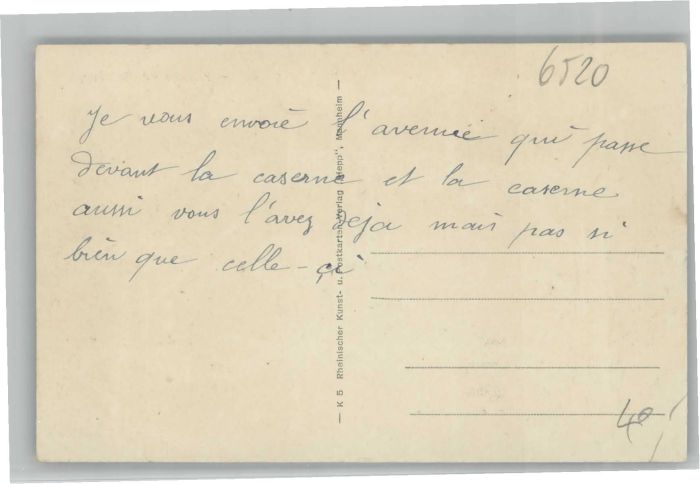 6520
Je vous envoie l'avenue qui passe
devant la caserne et la caserne
aussi vous l'avez deja mais pas si
bien que celle-çi
— K 5 Rheinischer Kunst- u. Postkarten-Verlag "Hepp", Mannheim —